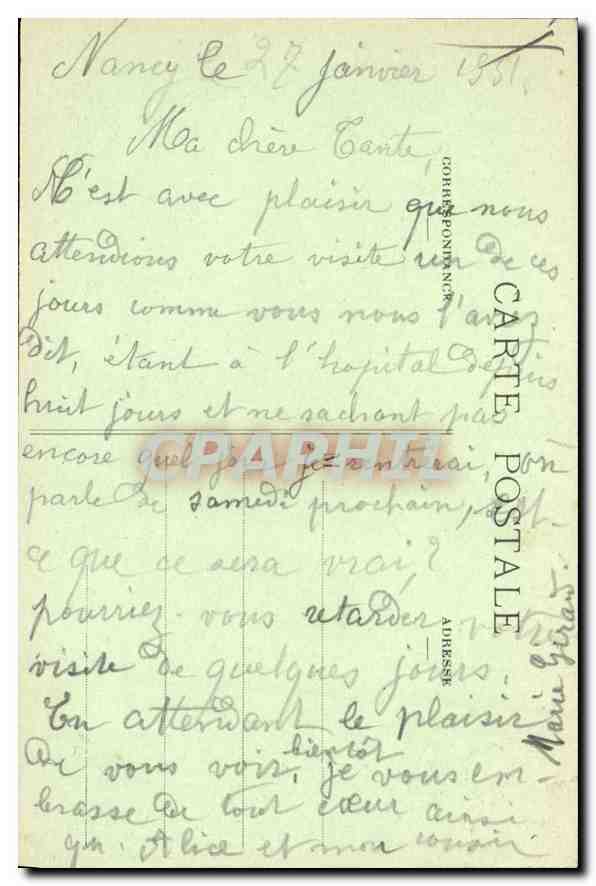 Nancy le 27 janvier 1931.
Ma chère Tante,
C'est avec plaisir que nous
attendions votre visite un de ces
jours comme vous nous l'avez
dit, étant à l'hopital depuis
huit jours et ne sachant pas
encore quel jour je rentrerai, on
parle de samedi prochain, est-
ce que ce sera vrai?
pourriez-vous retarder votre
visite de quelques jours.
En attendant le plaisir
de vous voir bientôt, je vous em-
brasse de tout cœur ainsi
qu' Alice et mon
Marie Girard.
CARTE POSTALE
CORRESPONDANCE
ADRESSE
CPAPHIL